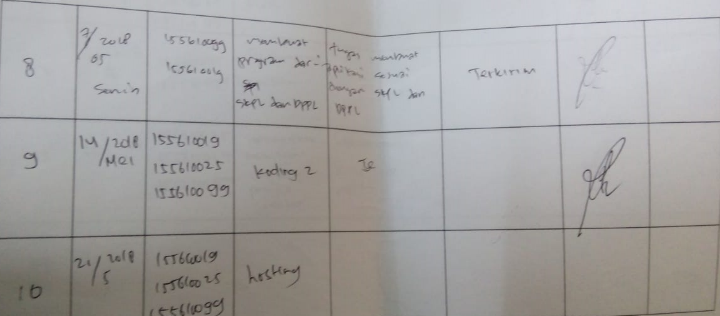 8
7/2018
05
Senin
155610099
155610019
membuat
program dari
SKPL dan DPPL
tugas membuat
aplikasi sesuai
dengan SKPL dan
DPPL
Terkirim
9
14/2018
Mei
155610019
155610025
155610099
Koding 2
10
21/2018
5
155610019
155610025
155610099
hosting